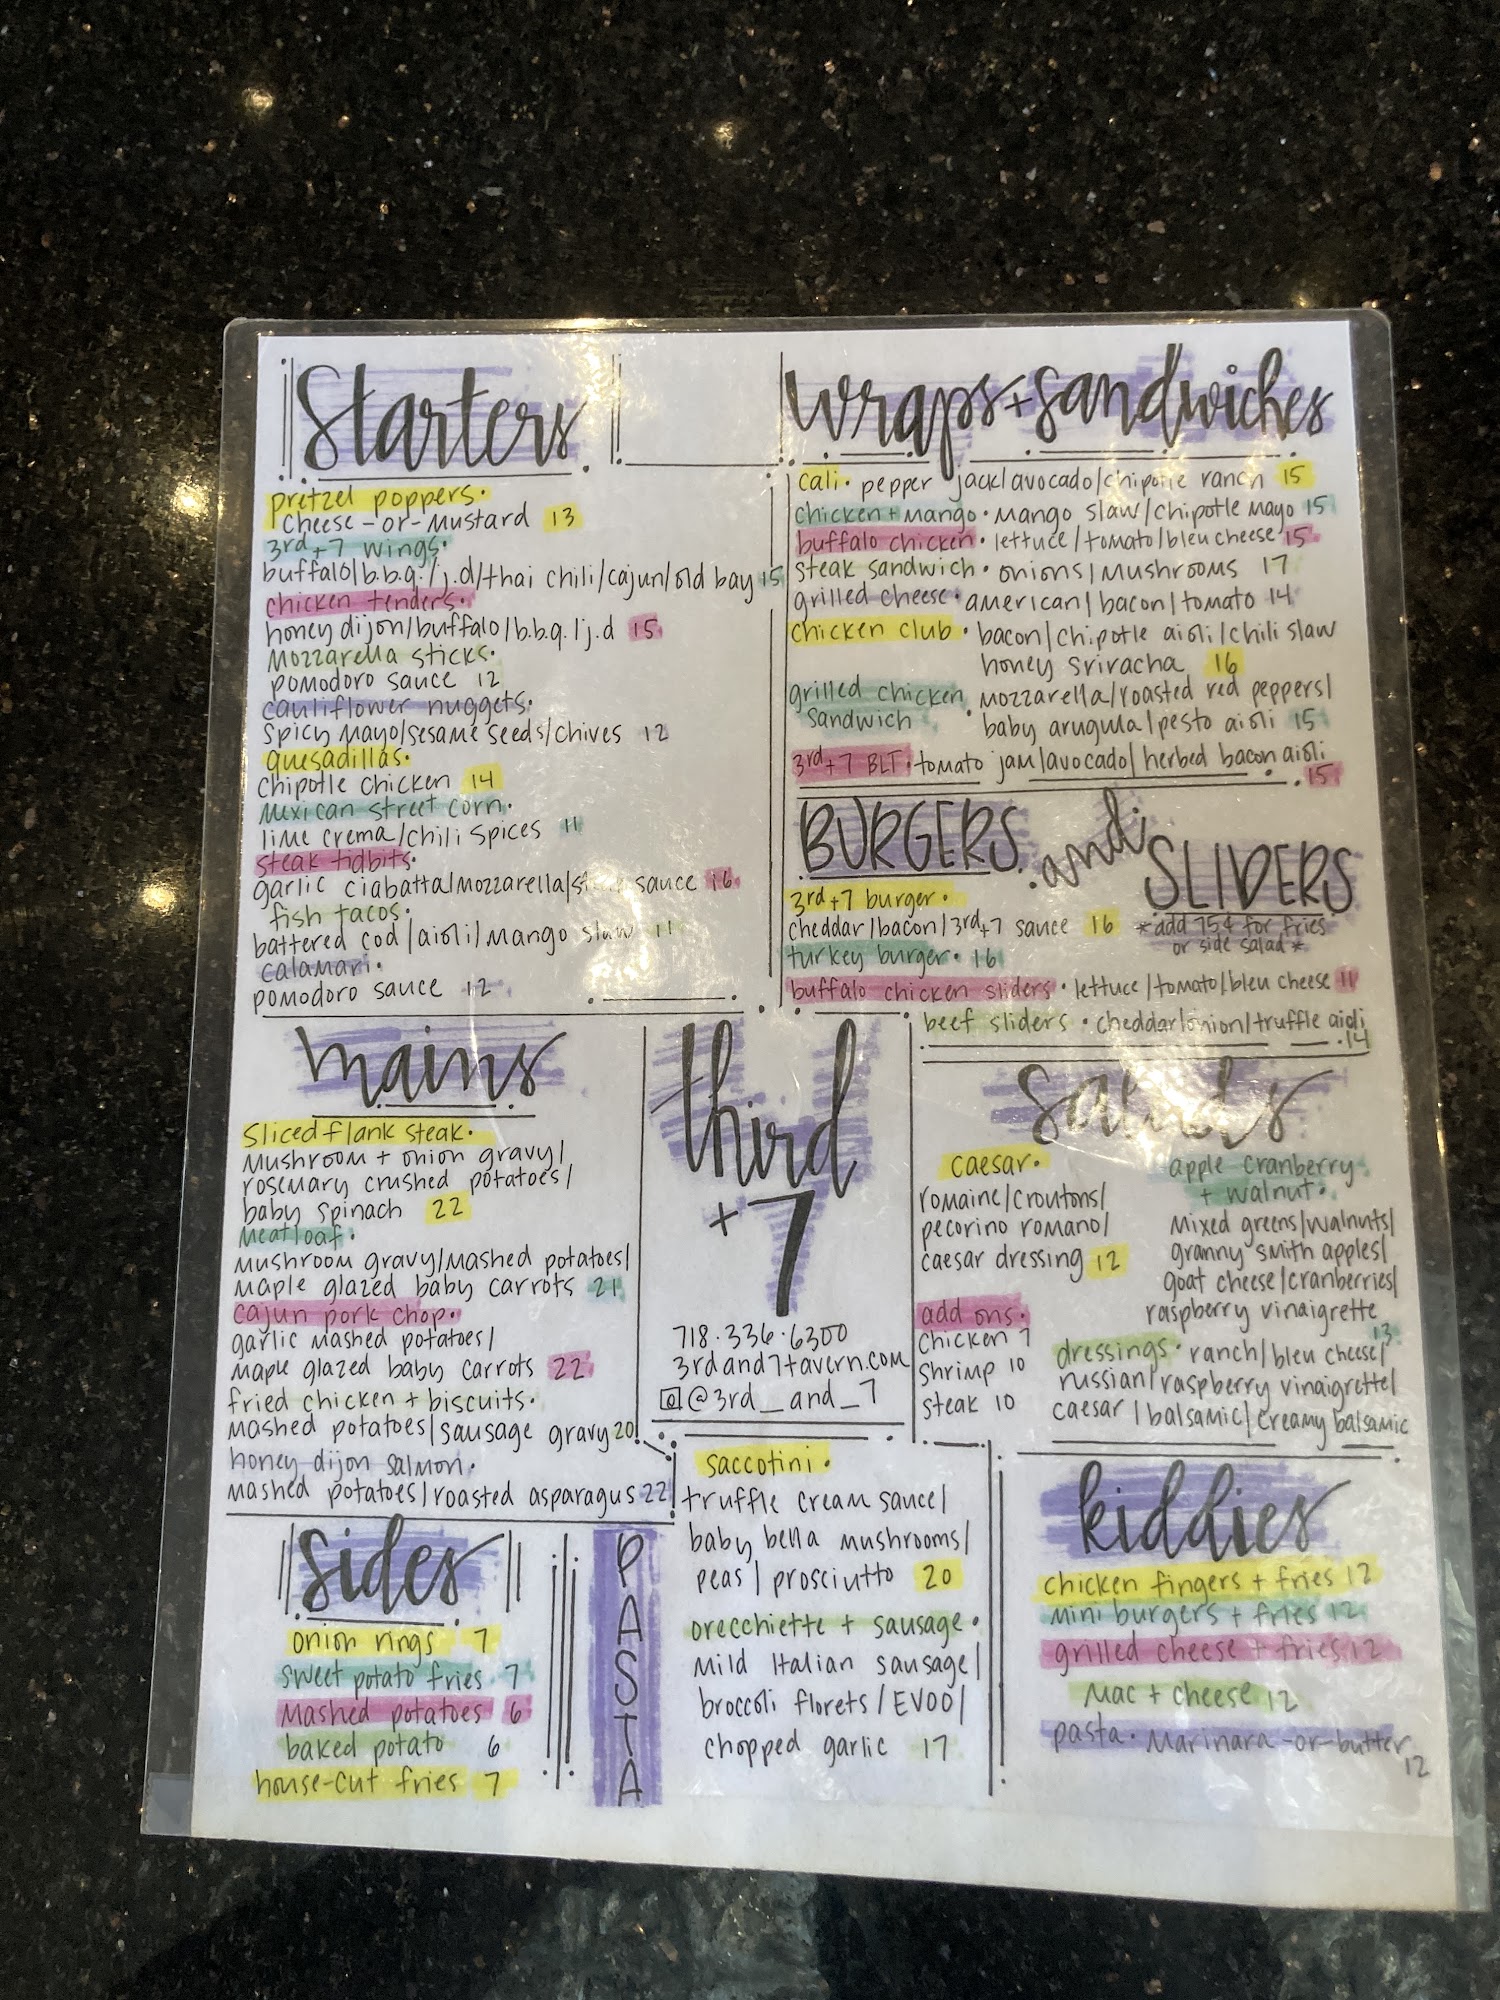 Starters
pretzel poppers.
Cheese-or-Mustard 13
3rd+7 wings.
buffalo/b.b.q./j.d/thai chili/cajun/old bay 15
chicken tenders.
honey dijon/buffalo/b.b.q./j.d 15
Mozzarella sticks.
pomodoro sauce 12
cauliflower nuggets.
Spicy Mayo/sesame seeds/chives 12
quesadillas.
Chipotle chicken 14
Mexican street corn.
lime crema/chili spices 11
steak tidbits.
garlic ciabatta/mozzarella/ sauce 16
fish tacos.
battered cod/aioli/mango slaw 11
calamari.
pomodoro sauce 12
wraps+sandwiches
cali. pepper jack/avocado/chipotle ranch 15
chicken+mango. mango slaw/chipotle mayo 15
buffalo chicken. lettuce/tomato/bleu cheese 15
steak sandwich. onions/mushrooms 17
grilled cheese. american/bacon/tomato 14
chicken club. bacon/chipotle aioli/chili slaw
honey sriracha 16
grilled chicken mozzarella/roasted red peppers/
sandwich . baby arugula/pesto aioli 15
3rd+7 BLT. tomato jam/avocado/herbed bacon aioli
15
BURGERS and SLIDERS
3rd+7 burger.
cheddar/bacon/3rd+7 sauce 16
*add 75¢ for fries
or side salad*
turkey burger. 16
buffalo chicken sliders. lettuce/tomato/bleu cheese 11
beef sliders. cheddar/onion/truffle aioli
14
mains
Sliced flank steak.
mushroom + onion gravy/
rosemary crushed potatoes/
baby spinach 22
Meatloaf.
mushroom gravy/mashed potatoes/
maple glazed baby carrots 21
cajun pork chop.
garlic mashed potatoes/
maple glazed baby carrots 22
fried chicken + biscuits.
mashed potatoes/sausage gravy 20
honey dijon salmon.
mashed potatoes/roasted asparagus 22
third
+7
718.336.6300
3rdand7tavern.com
@3rd_and_7
Salads
caesar.
romaine/croutons/
pecorino romano/
caesar dressing 12
add ons.
chicken 7
shrimp 10
steak 10
apple cranberry
+ walnut.
mixed greens/walnuts/
granny smith apples/
goat cheese/cranberries/
raspberry vinaigrette
13
dressings. ranch/bleu cheese/
russian/raspberry vinaigrette/
caesar/balsamic/creamy balsamic
sides
onion rings 7
sweet potato fries 7
mashed potatoes 6
baked potato 6
house-cut fries 7
PASTA
saccotini.
truffle cream sauce/
baby bella mushrooms/
peas/prosciutto 20
orecchiette + sausage.
mild Italian sausage/
broccoli florets/EVOO/
chopped garlic 17
kiddies
chicken fingers + fries 12
mini burgers + fries 12
grilled cheese + fries 12
mac + cheese 12
pasta. marinara-or-butter
12